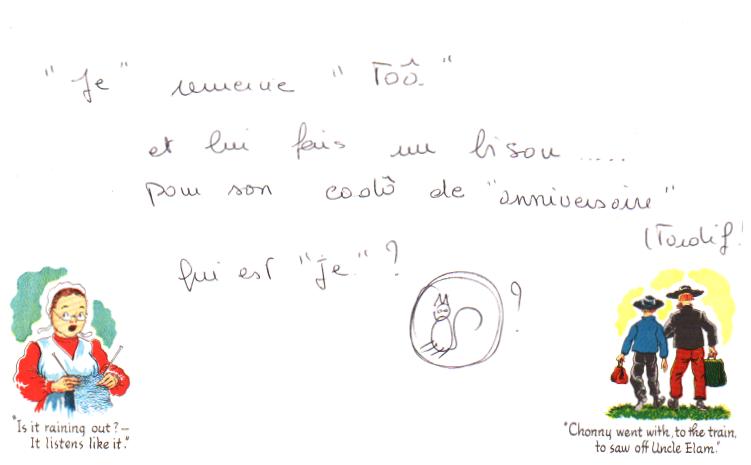 "Je" remercie "Toô"
et lui fais un bisou.....
pour son cadô de "anniversaire"
(Tardif!
Qui est "je"?
?
"Is it raining out?—
It listens like it."
"Chonny went with, to the train,
to saw off Uncle Elam."